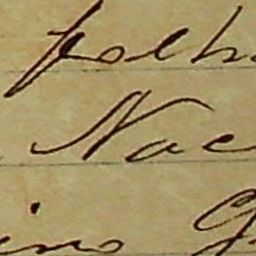 folh
Nac
ino G